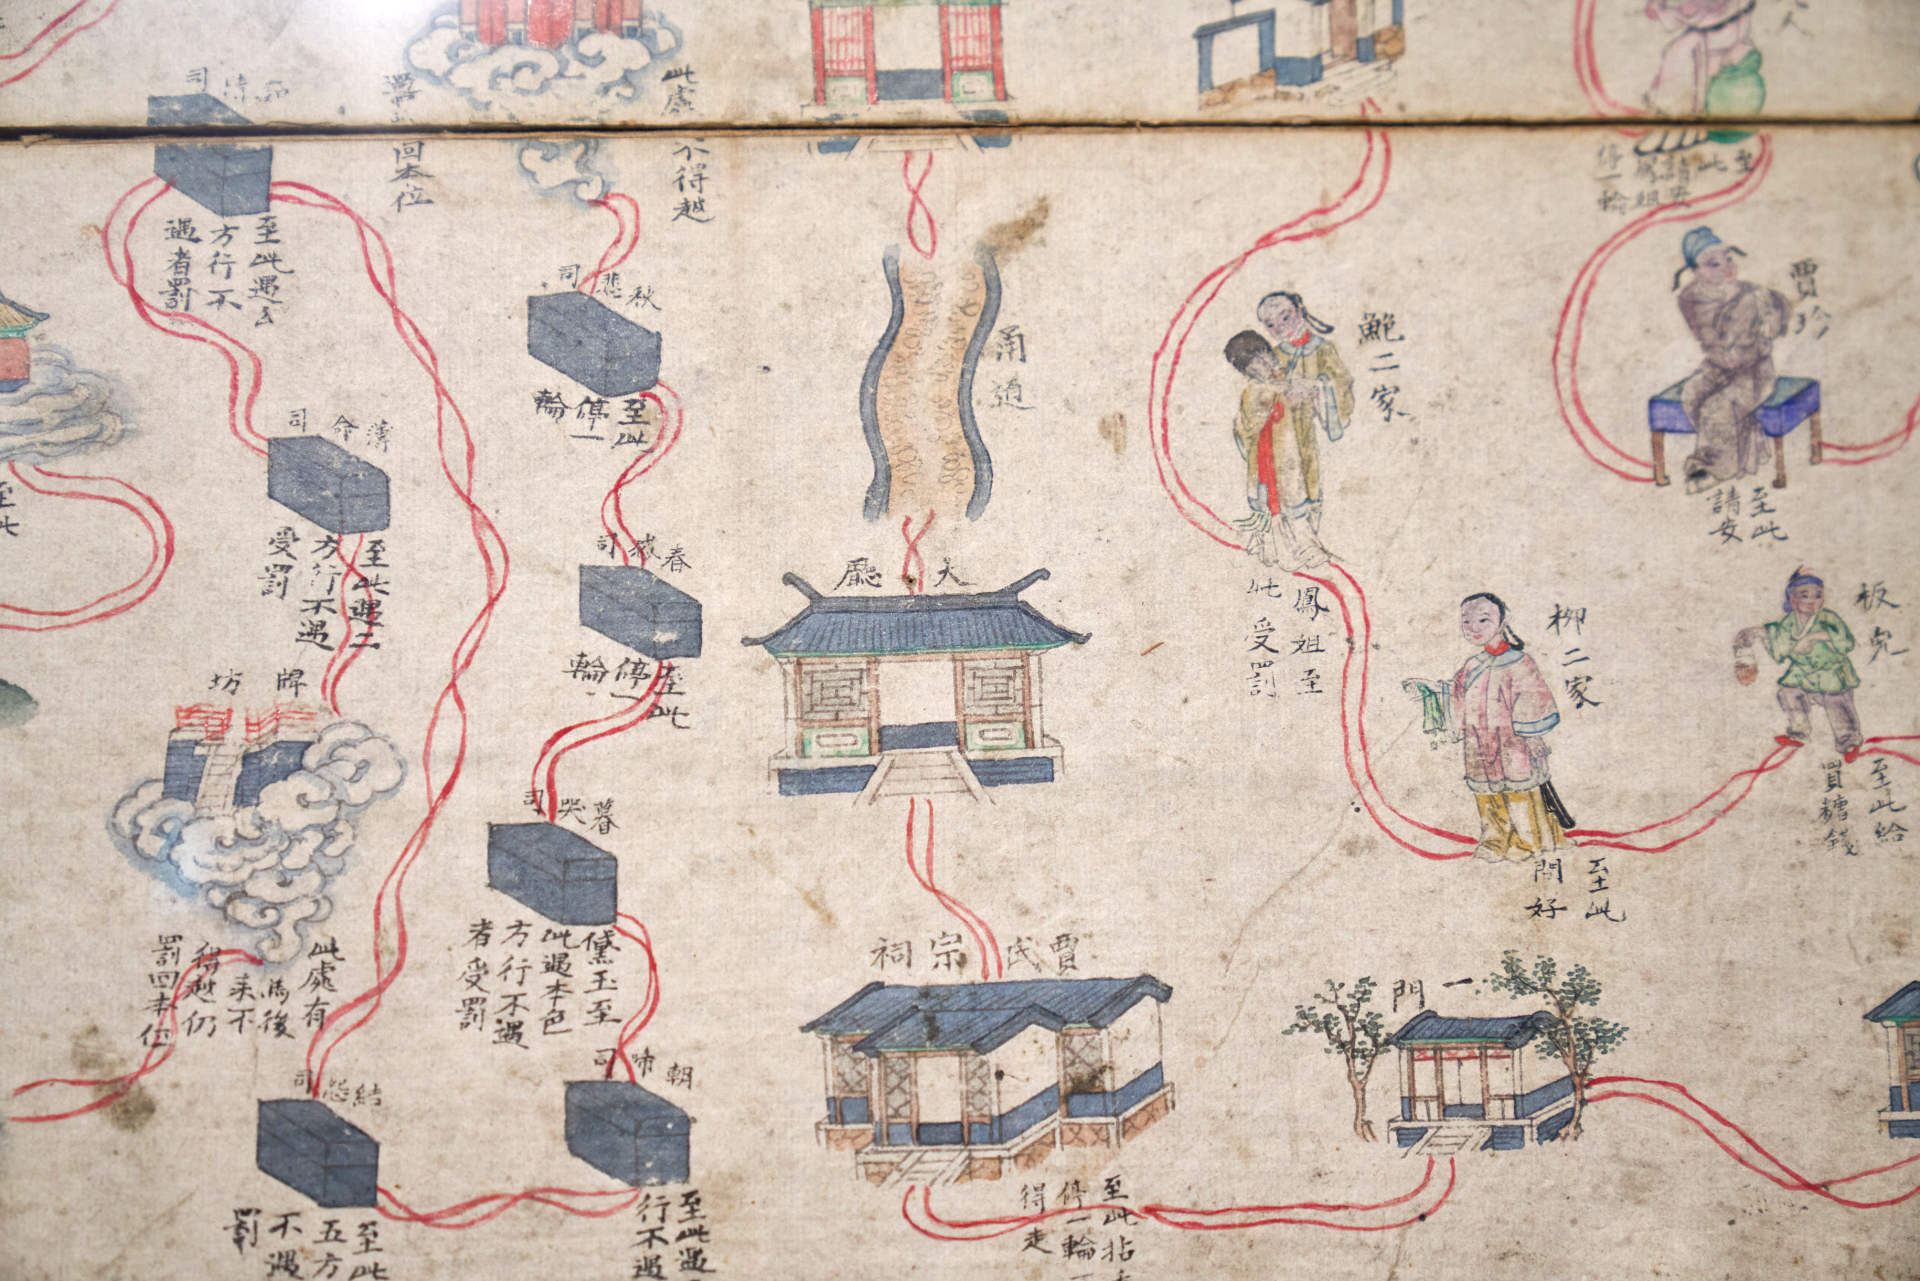 司
此處
不得越
回本位
至此遇三
方行不
遇者罰
秋悲司
至此
停一
輪
甬道
鮑二家
鳳姐至
此受罰
賈珍
至此
請安
至此
薄命司
至此遇二
方行不遇
受罰
春感司
至此
停一
輪
大廳
柳二家
至此
問好
板兒
至此給
買糖錢
牌坊
此處有
後
來不
得越仍
罰回本位
暮哭司
黛玉至
此遇本色
方行不遇
者受罰
賈氏宗祠
至此拈
停一輪
得走
一門
朝啼司
至此遇
行不遇
結怨司
至此
五方
不遇
罰